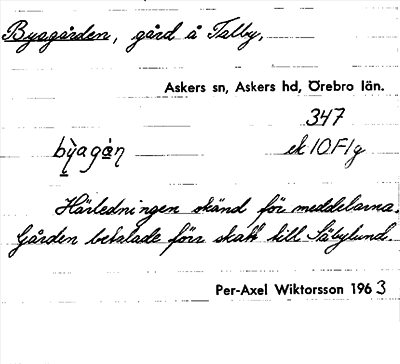 Byagården, gård å Talby,
Askers sn, Askers hd, Örebro län.
347
bỳagạ̀ṇ ek 10F1g
Härledningen okänd för meddelarna.
Gården betalade förr skatt till Säbylund.
Per-Axel Wiktorsson 1963